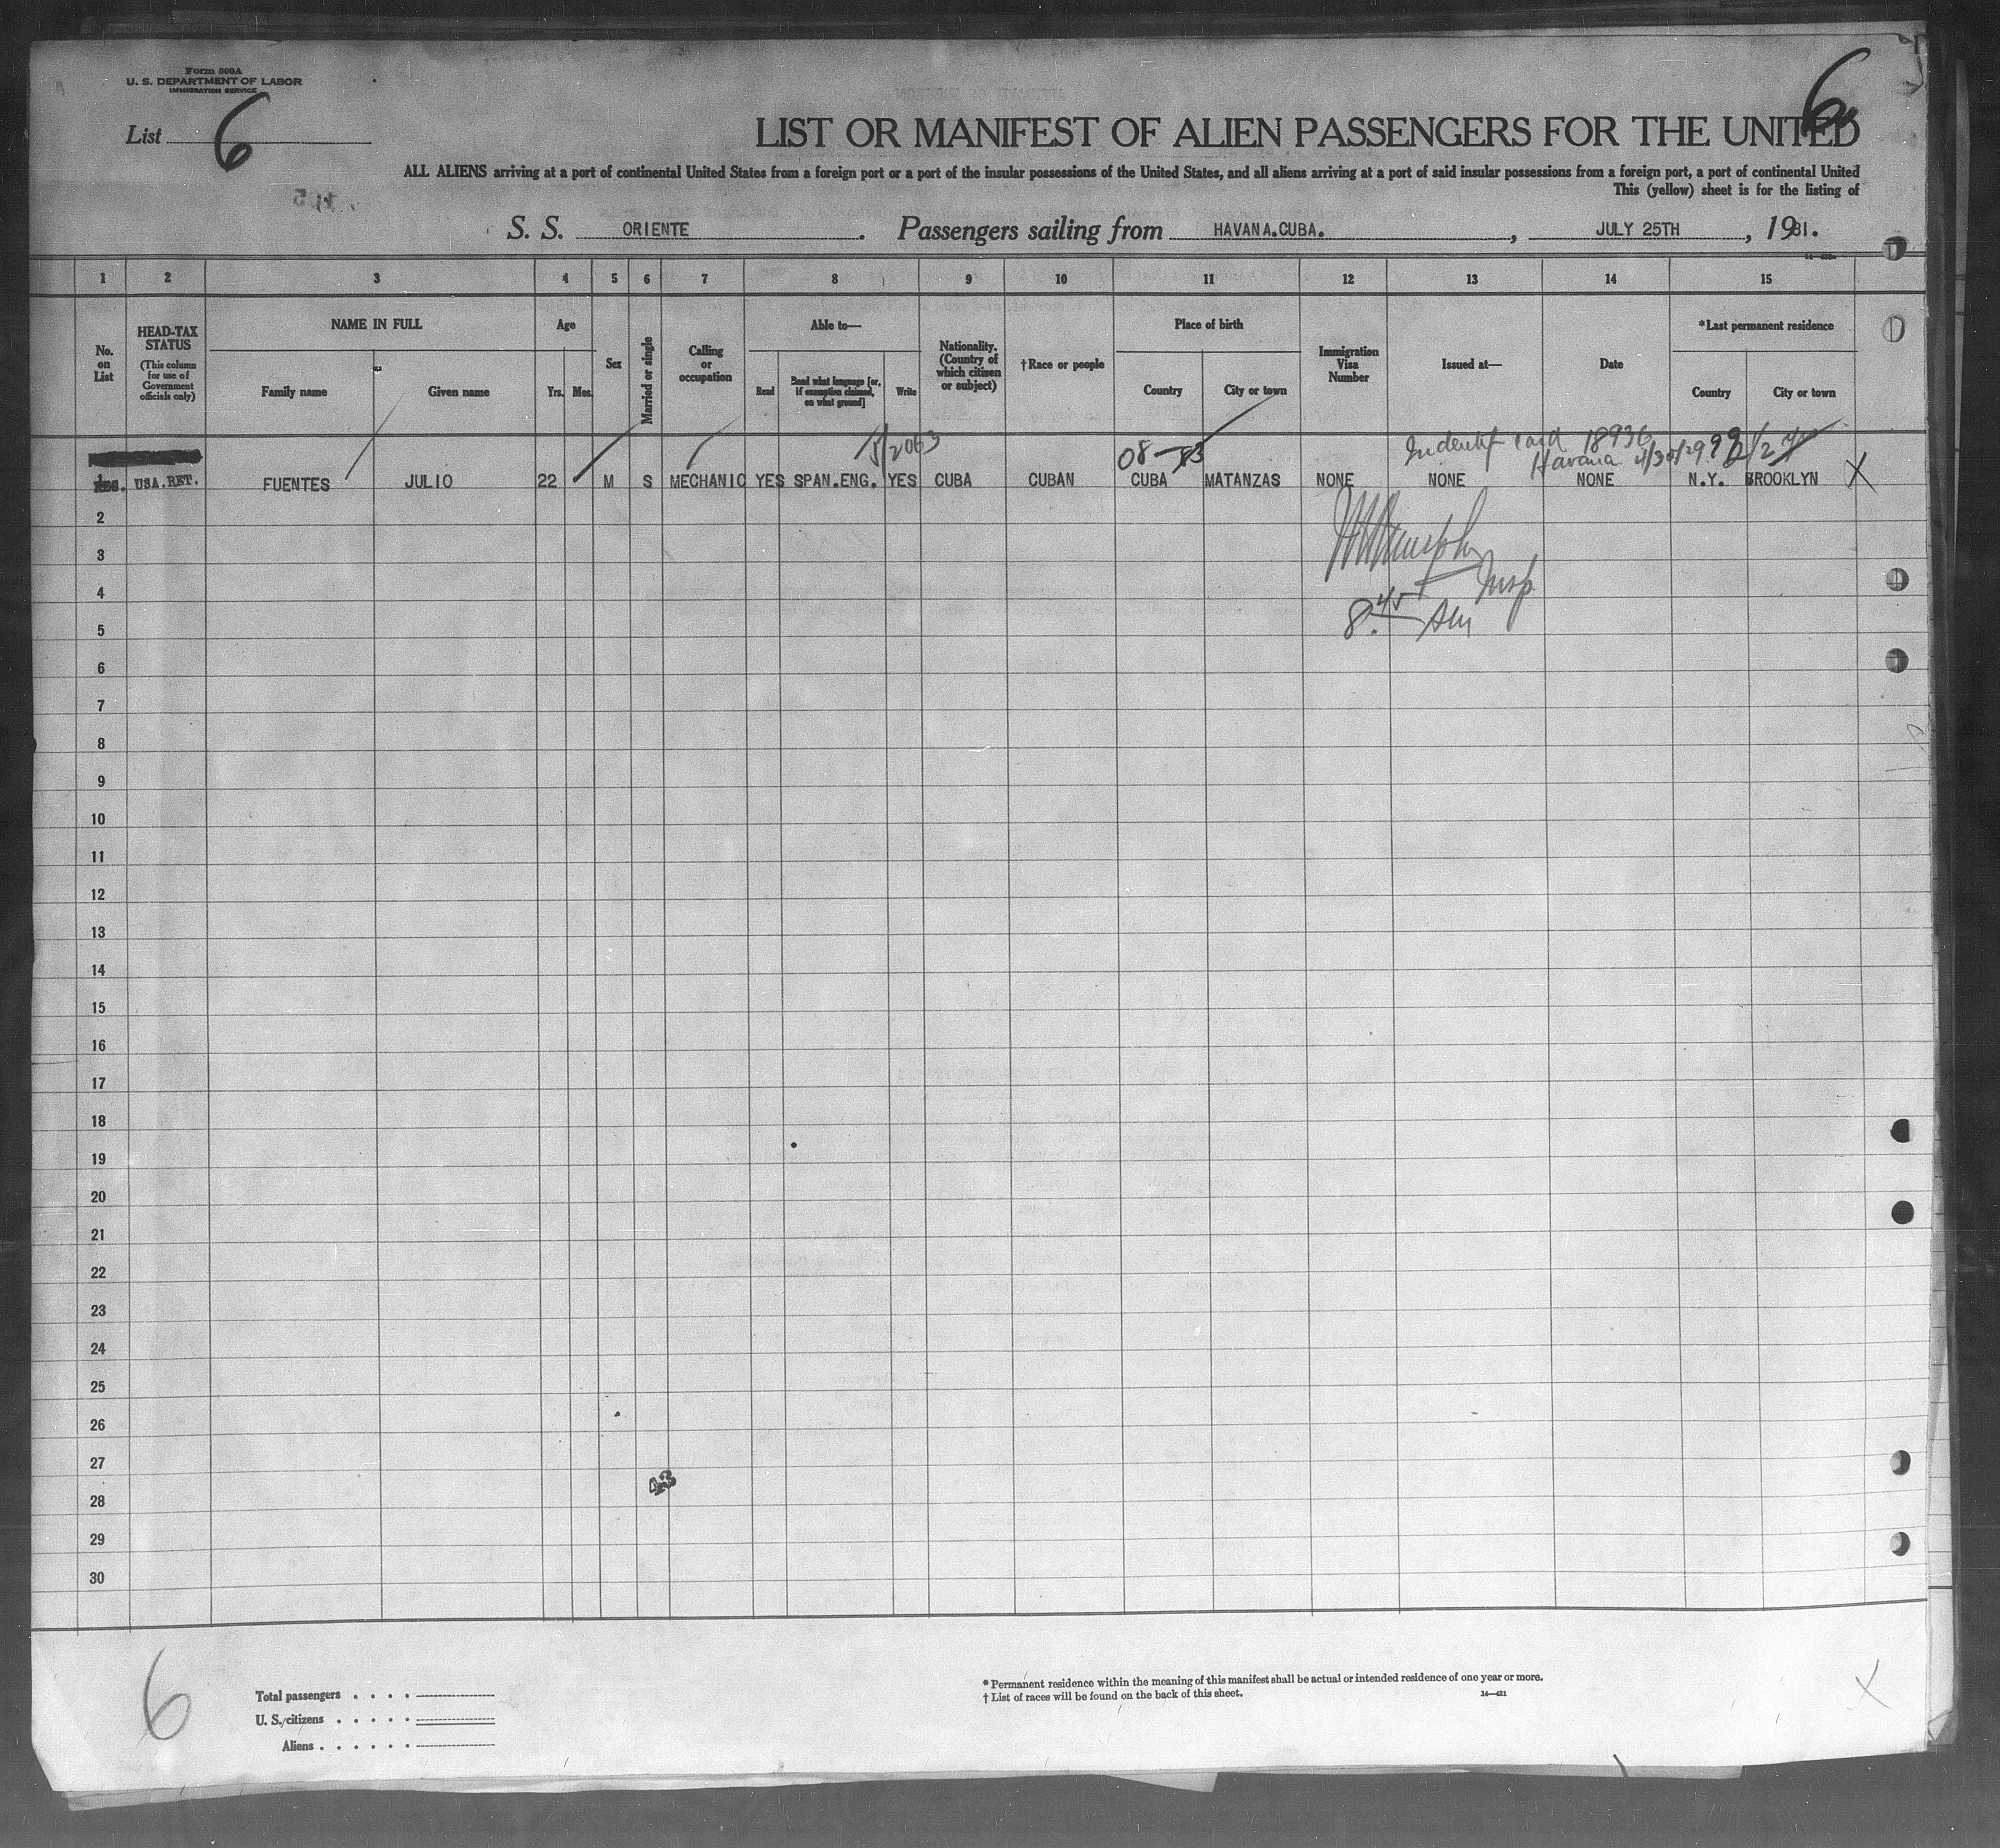 Form 500A
U. S. DEPARTMENT OF LABOR
IMMIGRATION SERVICE
List 6
6
LIST OR MANIFEST OF ALIEN PASSENGERS FOR THE UNITED
ALL ALIENS arriving at a port of continental United States from a foreign port or a port of the insular possessions of the United States, and all aliens arriving at a port of said insular possessions from a foreign port, a port of continental United
This (yellow) sheet is for the listing of
S. S. ORIENTE. Passengers sailing from HAVANA.CUBA., JULY 25TH, 1931.
1 2 3 4 5 6 7 8 9 10 11 12 13 14 15
No. on List
HEAD-TAX STATUS
(This column for use of Government officials only)
NAME IN FULL
Family name
Given name
Age
Yrs. Mos.
Sex
Married or single
Calling or occupation
Able to—
Read
Read what language [or, if exemption claimed, on what ground]
Write
Nationality. (Country of which citizen or subject)
†Race or people
Place of birth
Country
City or town
Immigration Visa Number
Issued at—
Date
*Last permanent residence
Country
City or town
5/2063
08-83
Identif card 18936
Havana 4/30/29
USA.RET. FUENTES JULIO 22 M S MECHANIC YES SPAN.ENG. YES CUBA CUBAN CUBA MATANZAS NONE NONE NONE N.Y. BROOKLYN X
2
3
Insp
4
8.45 AM
5
6
7
8
9
10
11
12
13
14
15
16
17
18
19
20
21
22
23
24
25
26
27
43
28
29
30
6
Total passengers . . . .
U. S. citizens . . . . .
Aliens . . . . . .
* Permanent residence within the meaning of this manifest shall be actual or intended residence of one year or more.
† List of races will be found on the back of this sheet.
X